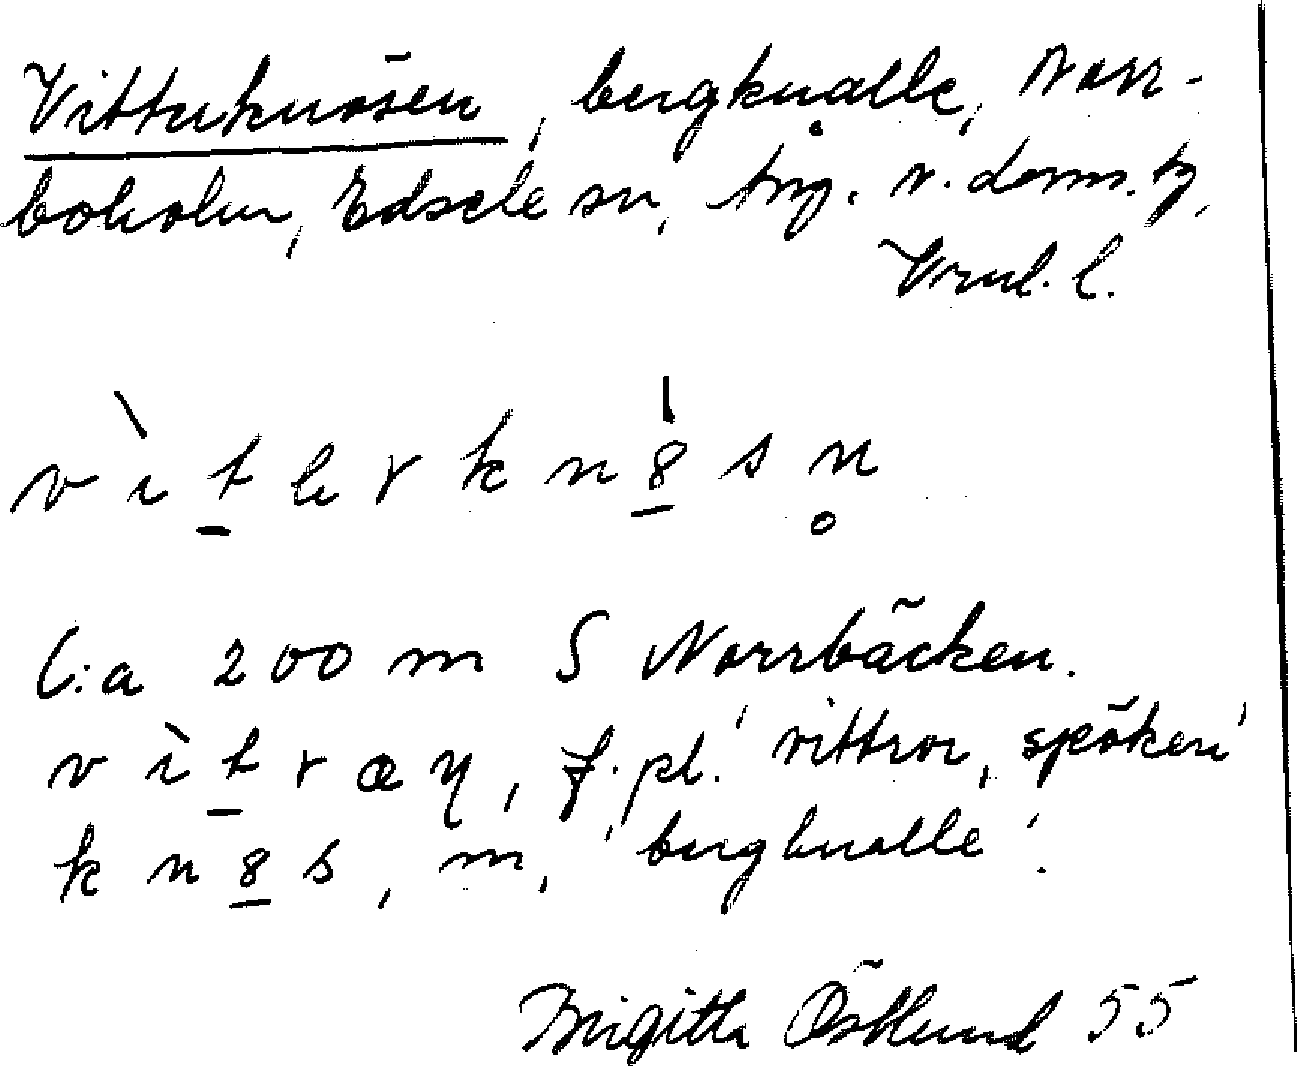 Vitterknösen, bergknalle, Norr-
boholm, Edsele sn, Ång. v. doms. tg,
Vnml. l.
v ì t e r k n 8 s n̥
C:a 200 m S Norrbäcken.
v ì t r æ r, f. pl. 'vittror, spöken'
k n 8 s, m, 'bergknalle'.
Birgitta Östlund 55